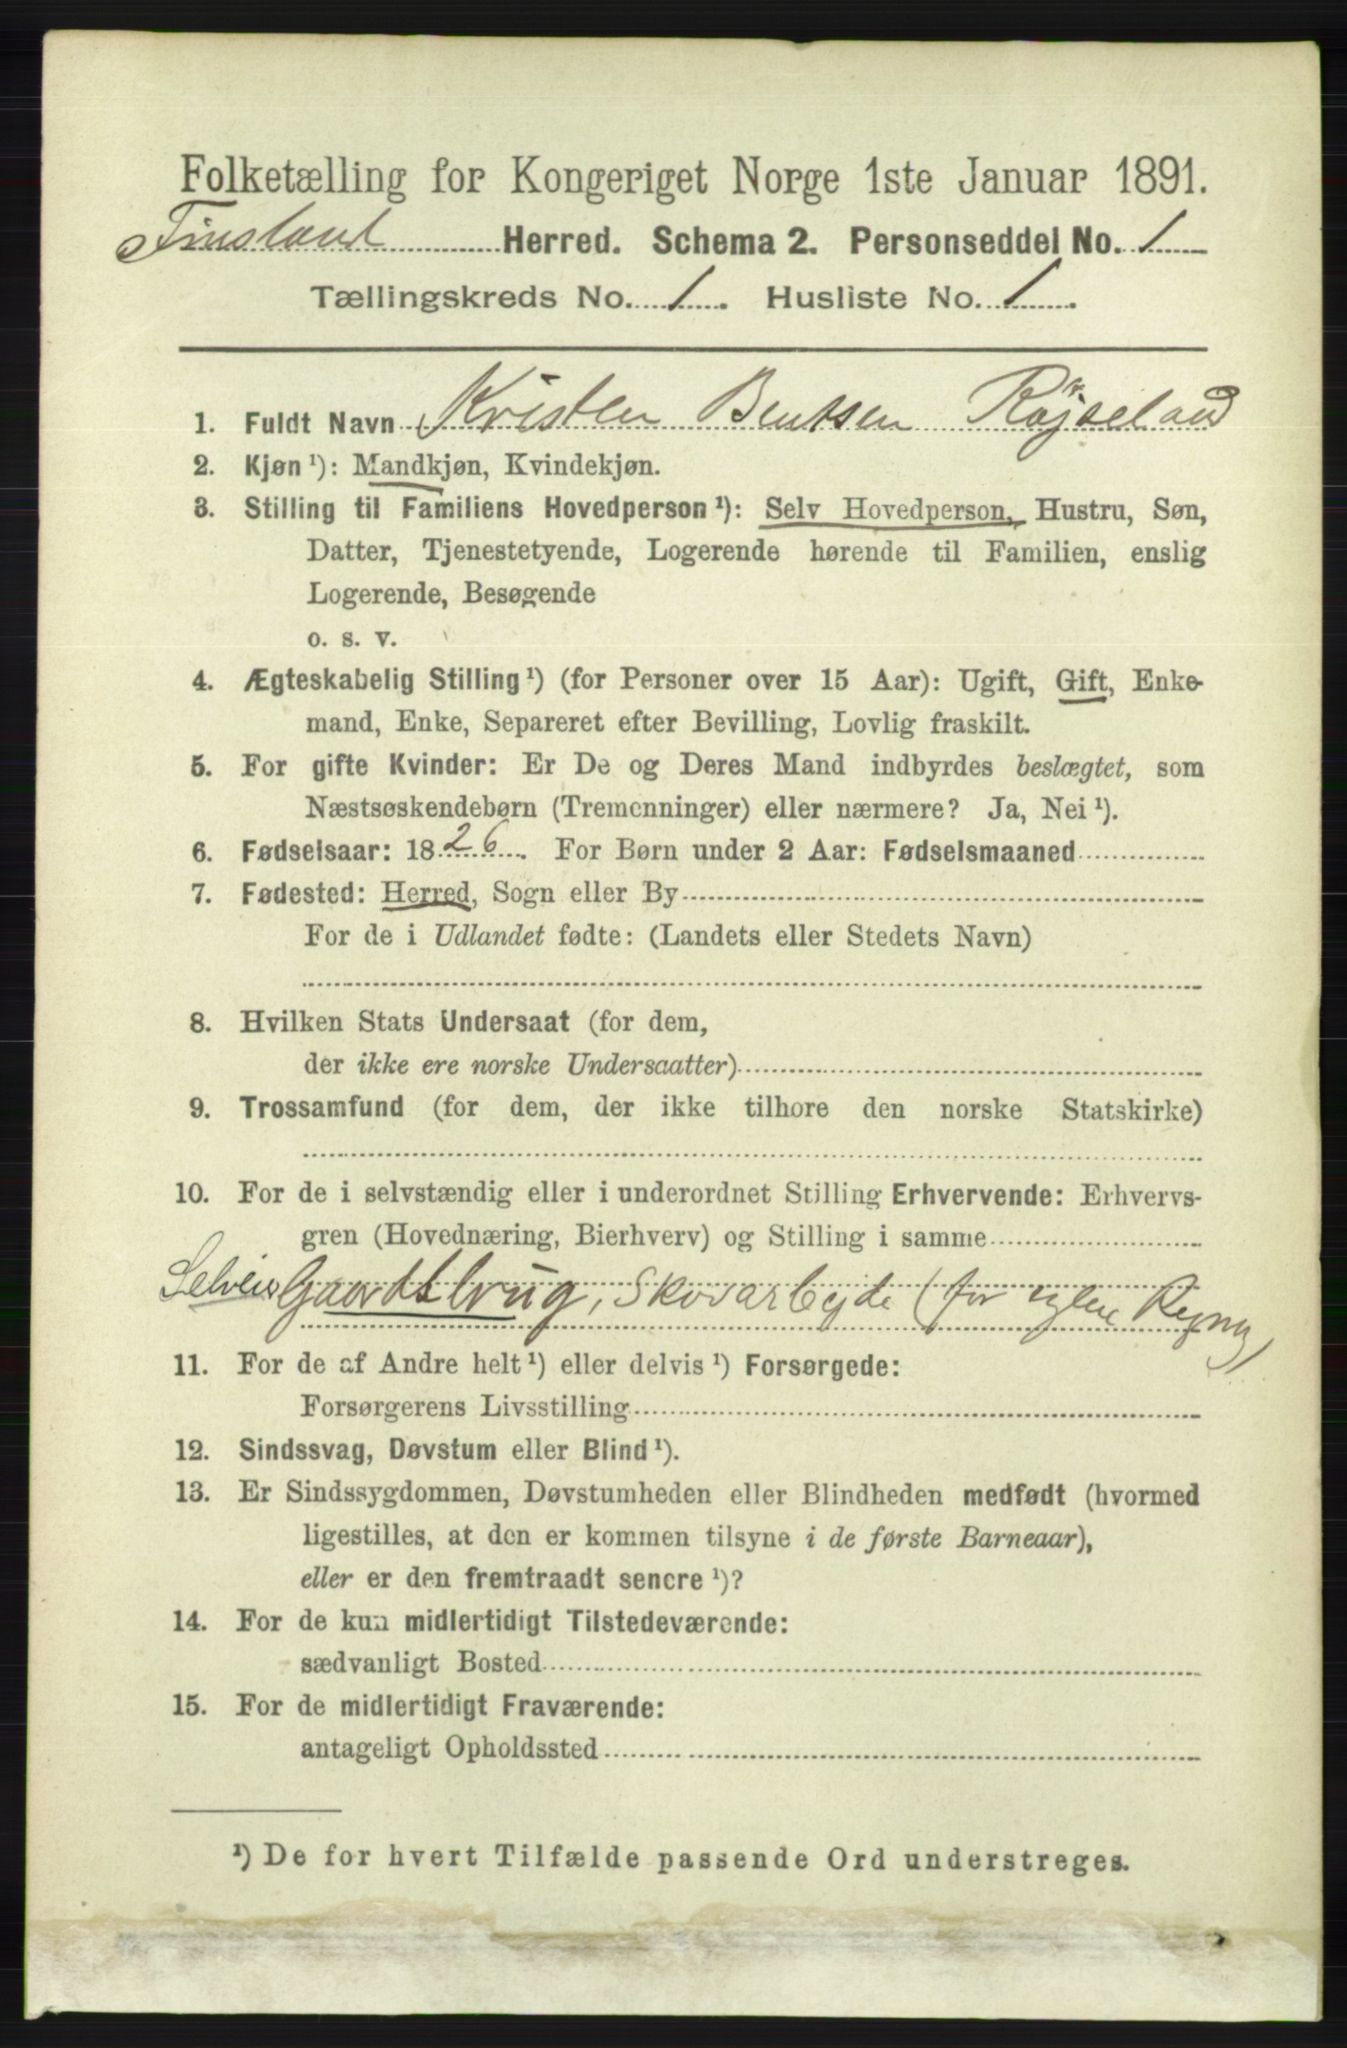 Folketælling for Kongeriget Norge 1ste Januar 1891.
Finsland Herred. Schema 2. Personseddel No. 1
Tællingskreds No. 1. Husliste No. 1.
1. Fuldt Navn Kristen Bentsen Röjseland
2. Kjøn ¹): Mandkjøn, Kvindekjøn.
3. Stilling til Familiens Hovedperson ¹): Selv Hovedperson, Hustru, Søn,
Datter, Tjenestetyende, Logerende hørende til Familien, enslig
Logerende, Besøgende
o. s. v.
4. Ægteskabelig Stilling ¹) (for Personer over 15 Aar): Ugift, Gift, Enke-
mand, Enke, Separeret efter Bevilling, Lovlig fraskilt.
5. For gifte Kvinder: Er De og Deres Mand indbyrdes beslægtet, som
Næstsøskendebørn (Tremenninger) eller nærmere? Ja, Nei ¹).
6. Fødselsaar: 1826. For Børn under 2 Aar: Fødselsmaaned
7. Fødested: Herred, Sogn eller By
For de i Udlandet fødte: (Landets eller Stedets Navn)
8. Hvilken Stats Undersaat (for dem,
der ikke ere norske Undersaatter)
9. Trossamfund (for dem, der ikke tilhøre den norske Statskirke)
10. For de i selvstændig eller i underordnet Stilling Erhvervende: Erhvervs-
gren (Hovednæring, Bierhverv) og Stilling i samme
Selveis Gaardsbrug, Skovarbejde (for egen Regng)
11. For de af Andre helt ¹) eller delvis ¹) Forsørgede:
Forsørgerens Livsstilling
12. Sindssvag, Døvstum eller Blind ¹).
13. Er Sindssygdommen, Døvstumheden eller Blindheden medfødt (hvormed
ligestilles, at den er kommen tilsyne i de første Barneaar),
eller er den fremtraadt senere ¹)?
14. For de kun midlertidigt Tilstedeværende:
sædvanligt Bosted
15. For de midlertidigt Fraværende:
antageligt Opholdssted
¹) De for hvert Tilfælde passende Ord understreges.